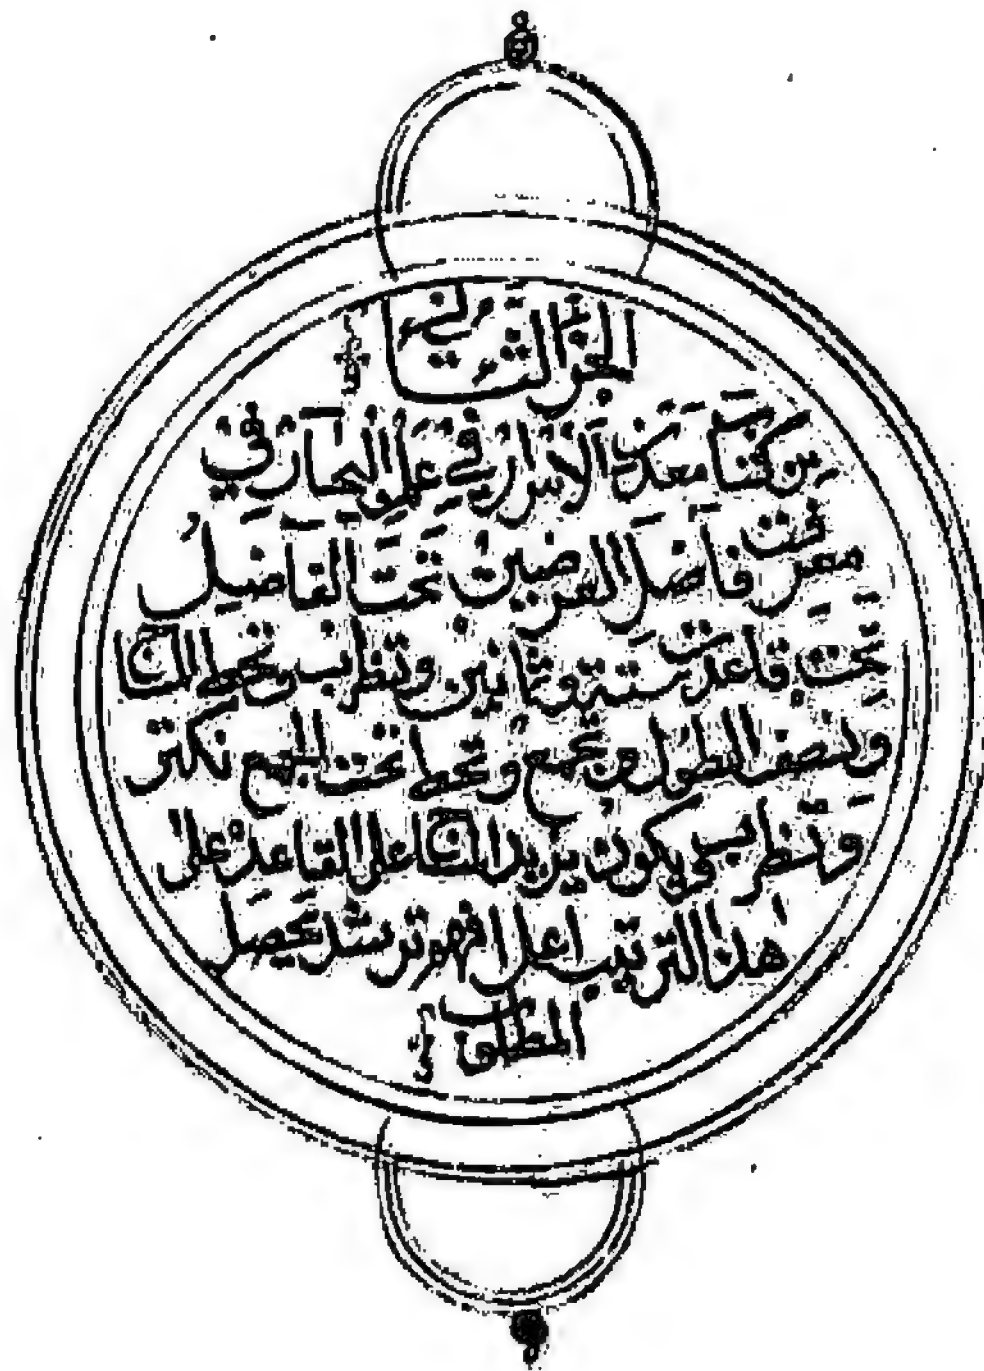 الجزء الثاني
من كتاب معدن الاسرار في علم البحار في
معرفت فاضل العرضين تحت الفاضل
تحت قاعدت ستة وثمانين وتضرب وتحط
ونصف الطول وتجمع وتحط تحت الجمع
وتضرب ويكون يزيد على القاعده على
هذا الترتيب اعلا افهم ترشد يحصل
المطلوب